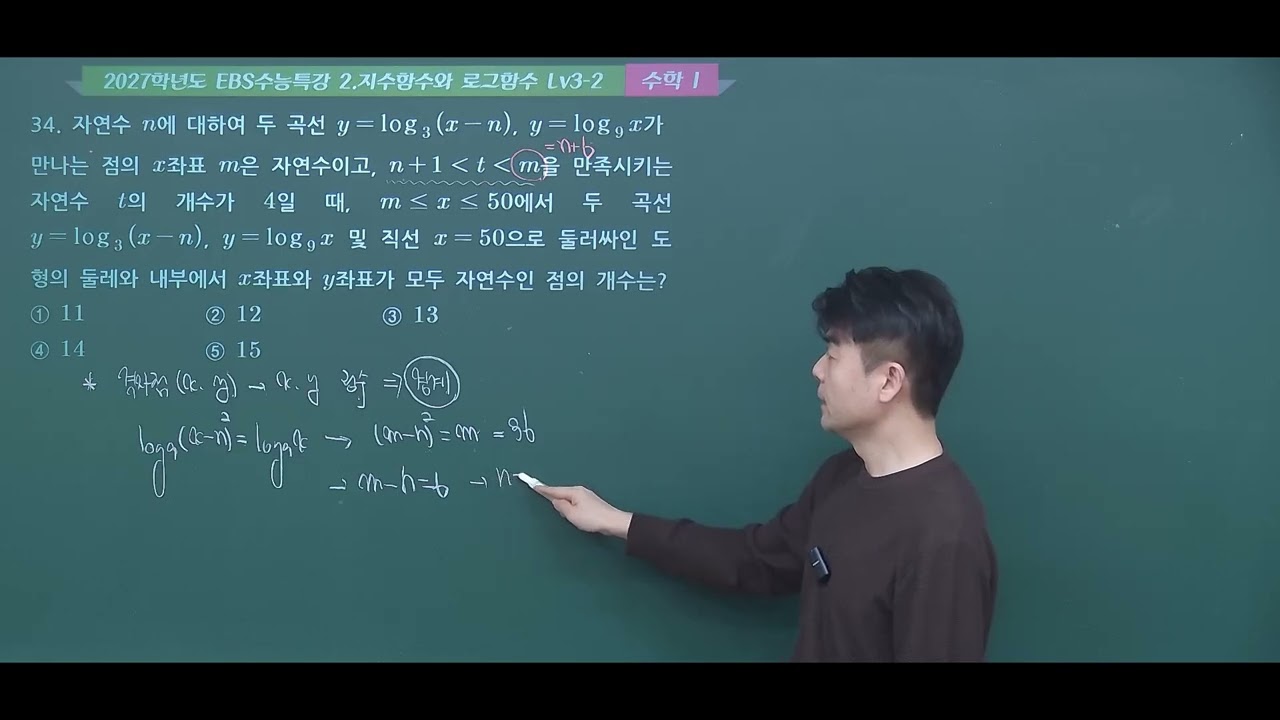 2027학년도 EBS수능특강 2.지수함수와 로그함수 Lv3-2 수학 I
34. 자연수 n에 대하여 두 곡선 y=log₃(x-n), y=log₉x가
=n+6
만나는 점의 x좌표 m은 자연수이고, n+1<t<m을 만족시키는
자연수 t의 개수가 4일 때, m≤x≤50에서 두 곡선
y=log₃(x-n), y=log₉x 및 직선 x=50으로 둘러싸인 도
형의 둘레와 내부에서 x좌표와 y좌표가 모두 자연수인 점의 개수는?
① 11 ② 12 ③ 13
④ 14 ⑤ 15
* 격자점(x, y) → x, y 정수 ⇒ 경계
log₉(x-n)²=log₉x → (m-n)²=m=36
→ m-n=6 → n=